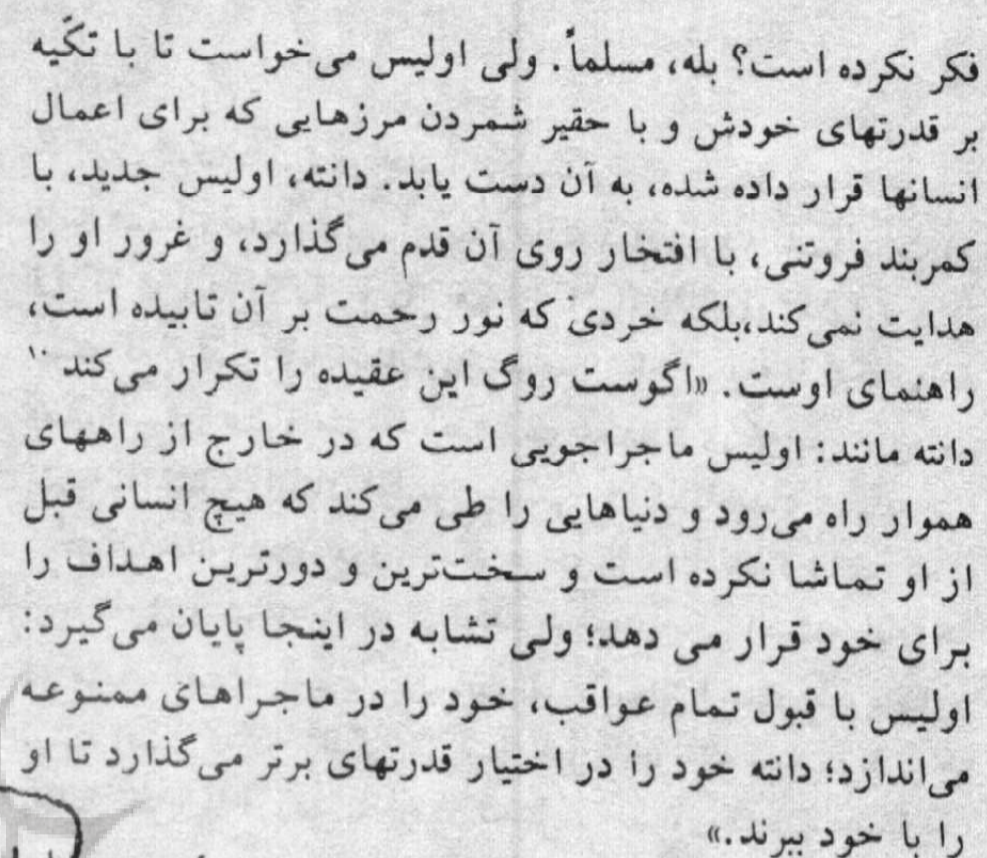 فکر نکرده است؟ بله، مسلماً. ولی اولیس می‌خواست تا با تکّیه
بر قدرتهای خودش و با حقیر شمردن مرزهایی که برای اعمال
انسانها قرار داده شده، به آن دست یابد. دانته، اولیس جدید، با
کمربند فروتنی، با افتخار روی آن قدم می‌گذارد، و غرور او را
هدایت نمی‌کند،بلکه خردی که نور رحمت بر آن تابیده است،
راهنمای اوست. «اگوست روگ این عقیده را تکرار می‌کند ۱۰
دانته مانند: اولیس ماجراجویی است که در خارج از راههای
هموار راه می‌رود و دنیاهایی را طی می‌کند که هیچ انسانی قبل
از او تماشا نکرده است و سخت‌ترین و دورترین اهداف را
برای خود قرار می دهد؛ ولی تشابه در اینجا پایان می‌گیرد:
اولیس با قبول تمام عواقب، خود را در ماجراهای ممنوعه
می‌اندازد؛ دانته خود را در اختیار قدرتهای برتر می‌گذارد تا او
را با خود ببرند.»